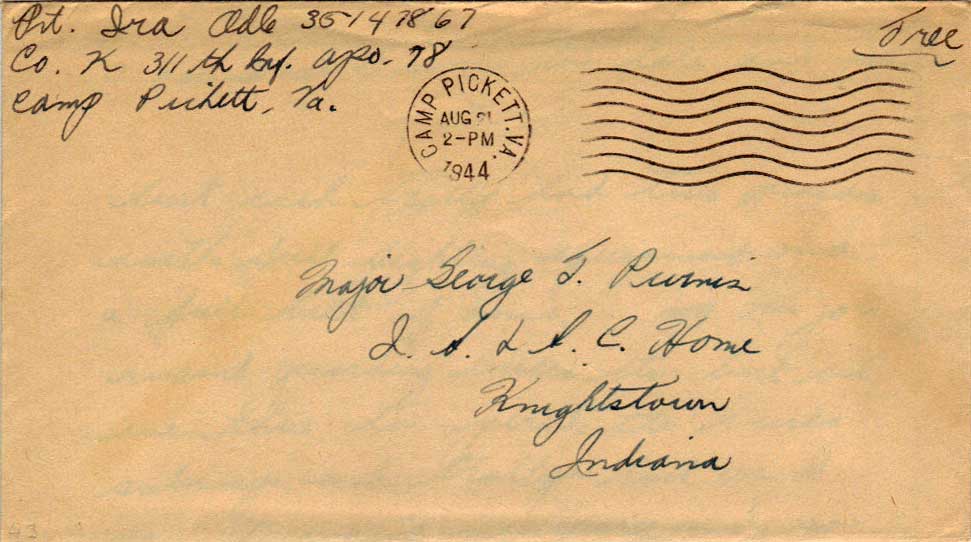 Pvt. Ira Odle 35147867
Free
Co. K 311th Inf. apo. 78
Camp Pickett, Va.
CAMP PICKETT. VA.
AUG 21
2-PM
1944
Major George T. Purvis
I. S. & S. C. Home
Knightstown
Indiana
43